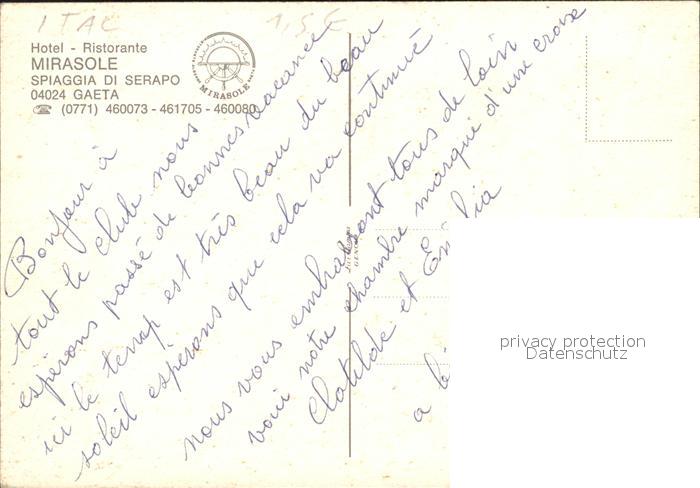 ITAL 1,5 €
Hotel - Ristorante
MIRASOLE
SPIAGGIA DI SERAPO
04024 GAETA
☎ (0771) 460073 - 461705 - 460080
MIRASOLE
Bonjour à
tout le club nous
espérons passé de bonnes vacances
ici le temp est très beau du beau
soleil espérons que cela va continué
nous vous embrassont tous de loin
voici notre chambre marqué d'une croix
Clotilde et
a
privacy protection
Datenschutz